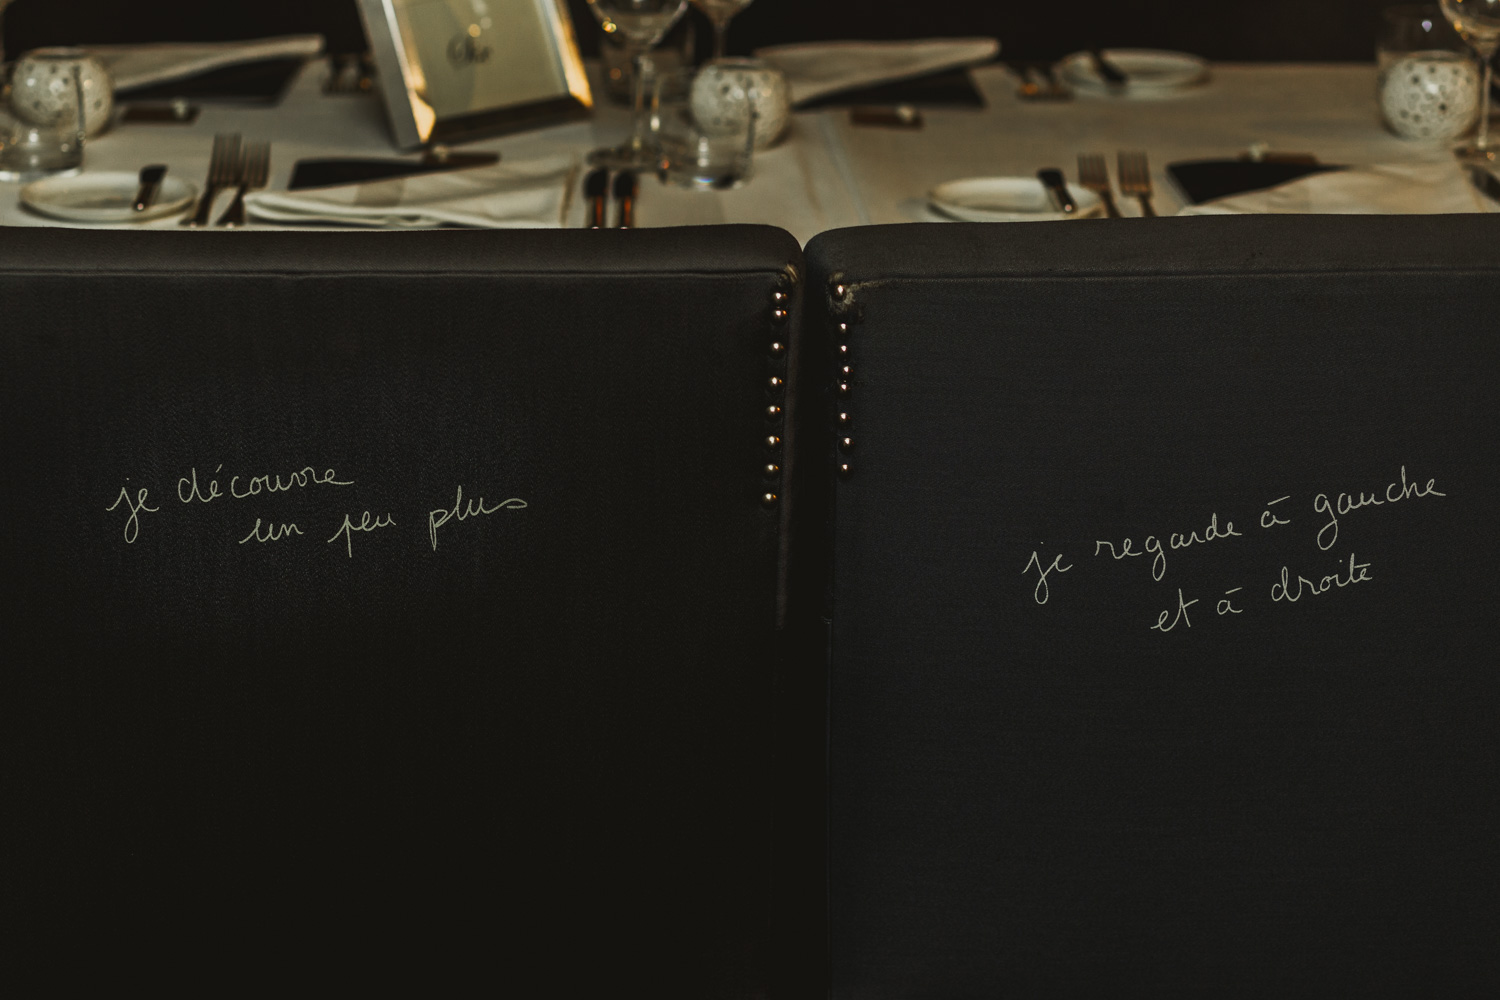 je découvre
un peu plus
je regarde à gauche
et à droite